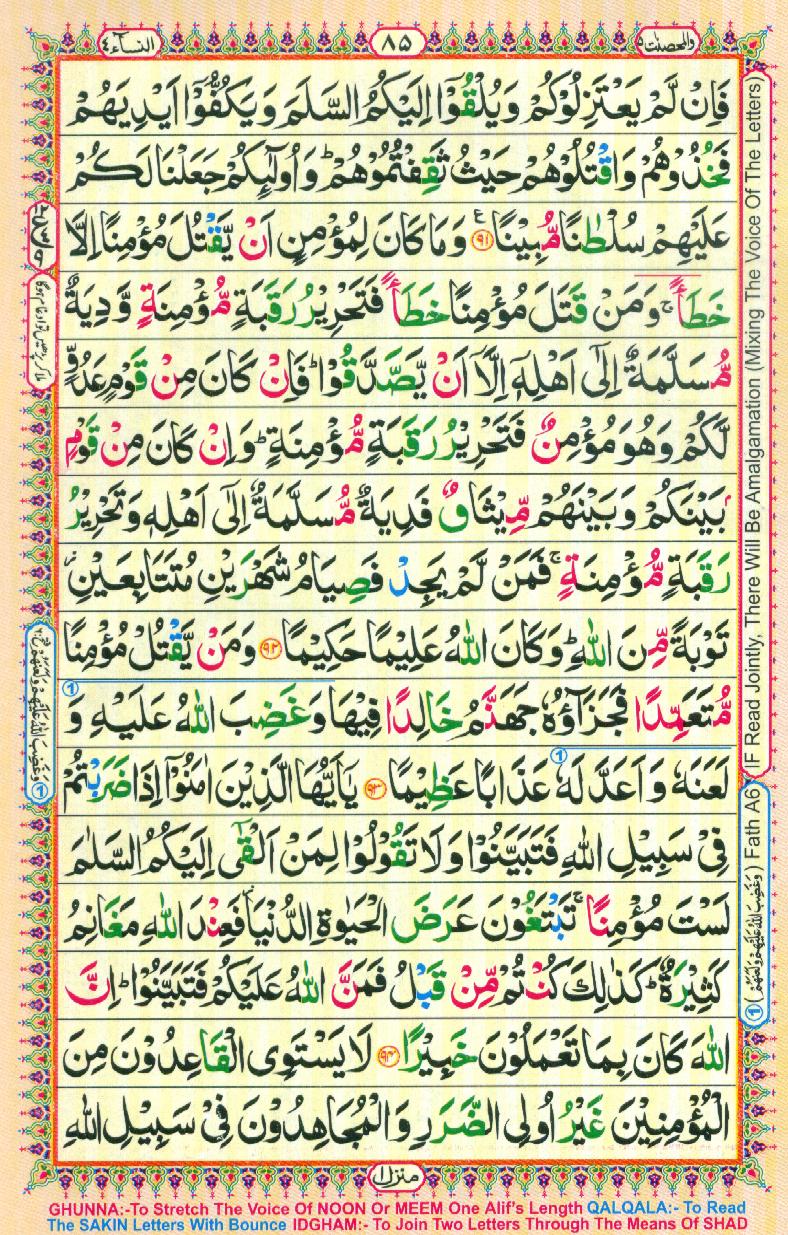 والمحصنت ٥
٨٥
النسآء ٤
فَاِنْ لَّمْ یَعْتَزِلُوْكُمْ وَیُلْقُوْۤا اِلَیْكُمُ السَّلَمَ وَیَكُفُّوْۤا اَیْدِیَهُمْ
فَخُذُوْهُمْ وَاقْتُلُوْهُمْ حَیْثُ ثَقِفْتُمُوْهُمْ ؕ وَاُولٰٓىِٕكُمْ جَعَلْنَا لَكُمْ
عَلَیْهِمْ سُلْطٰنًا مُّبِیْنًا ۟ ﴿۹۱﴾ وَمَا كَانَ لِمُؤْمِنٍ اَنْ یَّقْتُلَ مُؤْمِنًا اِلَّا
خَطَـًٔا ۚ وَمَنْ قَتَلَ مُؤْمِنًا خَطَـًٔا فَتَحْرِیْرُ رَقَبَةٍ مُّؤْمِنَةٍ وَّدِیَةٌ
مُّسَلَّمَةٌ اِلٰۤی اَهْلِهٖۤ اِلَّاۤ اَنْ یَّصَّدَّقُوْا ؕ فَاِنْ كَانَ مِنْ قَوْمٍ عَدُوٍّ
لَّكُمْ وَهُوَ مُؤْمِنٌ فَتَحْرِیْرُ رَقَبَةٍ مُّؤْمِنَةٍ ؕ وَاِنْ كَانَ مِنْ قَوْمٍۭ
بَیْنَكُمْ وَبَیْنَهُمْ مِّیْثَاقٌ فَدِیَةٌ مُّسَلَّمَةٌ اِلٰۤی اَهْلِهٖ وَتَحْرِیْرُ
رَقَبَةٍ مُّؤْمِنَةٍ ۚ فَمَنْ لَّمْ یَجِدْ فَصِیَامُ شَهْرَیْنِ مُتَتَابِعَیْنِ ؗ
تَوْبَةً مِّنَ اللّٰهِ ؕ وَكَانَ اللّٰهُ عَلِیْمًا حَكِیْمًا ﴿۹۲﴾ وَمَنْ یَّقْتُلْ مُؤْمِنًا
مُّتَعَمِّدًا فَجَزَآؤُهٗ جَهَنَّمُ خَالِدًا فِیْهَا وَغَضِبَ اللّٰهُ عَلَیْهِ وَ
لَعَنَهٗ وَاَعَدَّ لَهٗ عَذَابًا عَظِیْمًا ﴿۹۳﴾ یٰۤاَیُّهَا الَّذِیْنَ اٰمَنُوْۤا اِذَا ضَرَبْتُمْ
فِیْ سَبِیْلِ اللّٰهِ فَتَبَیَّنُوْا وَلَا تَقُوْلُوْا لِمَنْ اَلْقٰۤی اِلَیْكُمُ السَّلٰمَ
لَسْتَ مُؤْمِنًا ۚ تَبْتَغُوْنَ عَرَضَ الْحَیٰوةِ الدُّنْیَا ؗ فَعِنْدَ اللّٰهِ مَغَانِمُ
كَثِیْرَةٌ ؕ كَذٰلِكَ كُنْتُمْ مِّنْ قَبْلُ فَمَنَّ اللّٰهُ عَلَیْكُمْ فَتَبَیَّنُوْا ؕ اِنَّ
اللّٰهَ كَانَ بِمَا تَعْمَلُوْنَ خَبِیْرًا ﴿۹۴﴾ لَا یَسْتَوِی الْقَاعِدُوْنَ مِنَ
الْمُؤْمِنِیْنَ غَیْرُ اُولِی الضَّرَرِ وَالْمُجَاهِدُوْنَ فِیْ سَبِیْلِ اللّٰهِ
منزل ١
① (وَغَضِبَ اللّٰهُ عَلَیْهِمْ وَلَعَنَهُمْ) Fath A6
IF Read Jointly, There Will Be Amalgamation (Mixing The Voice Of The Letters)
GHUNNA:-To Stretch The Voice Of NOON Or MEEM One Alif's Length QALQALA:- To Read
The SAKIN Letters With Bounce IDGHAM:- To Join Two Letters Through The Means Of SHAD